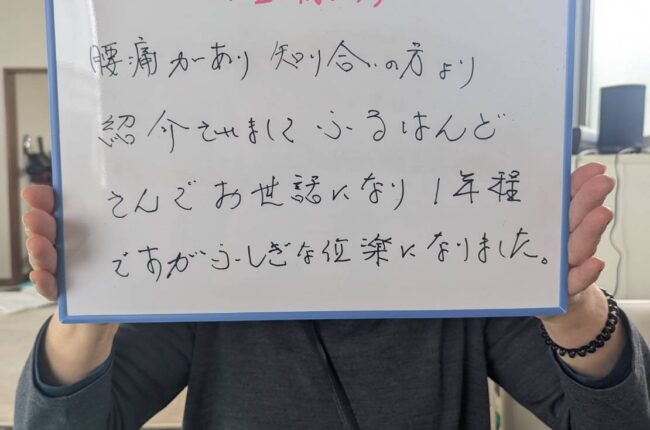 腰痛があり 知り合いの方より
紹介されまして ふるはんど
さんでお世話になり 1年程
ですがふしぎな位楽になりました。